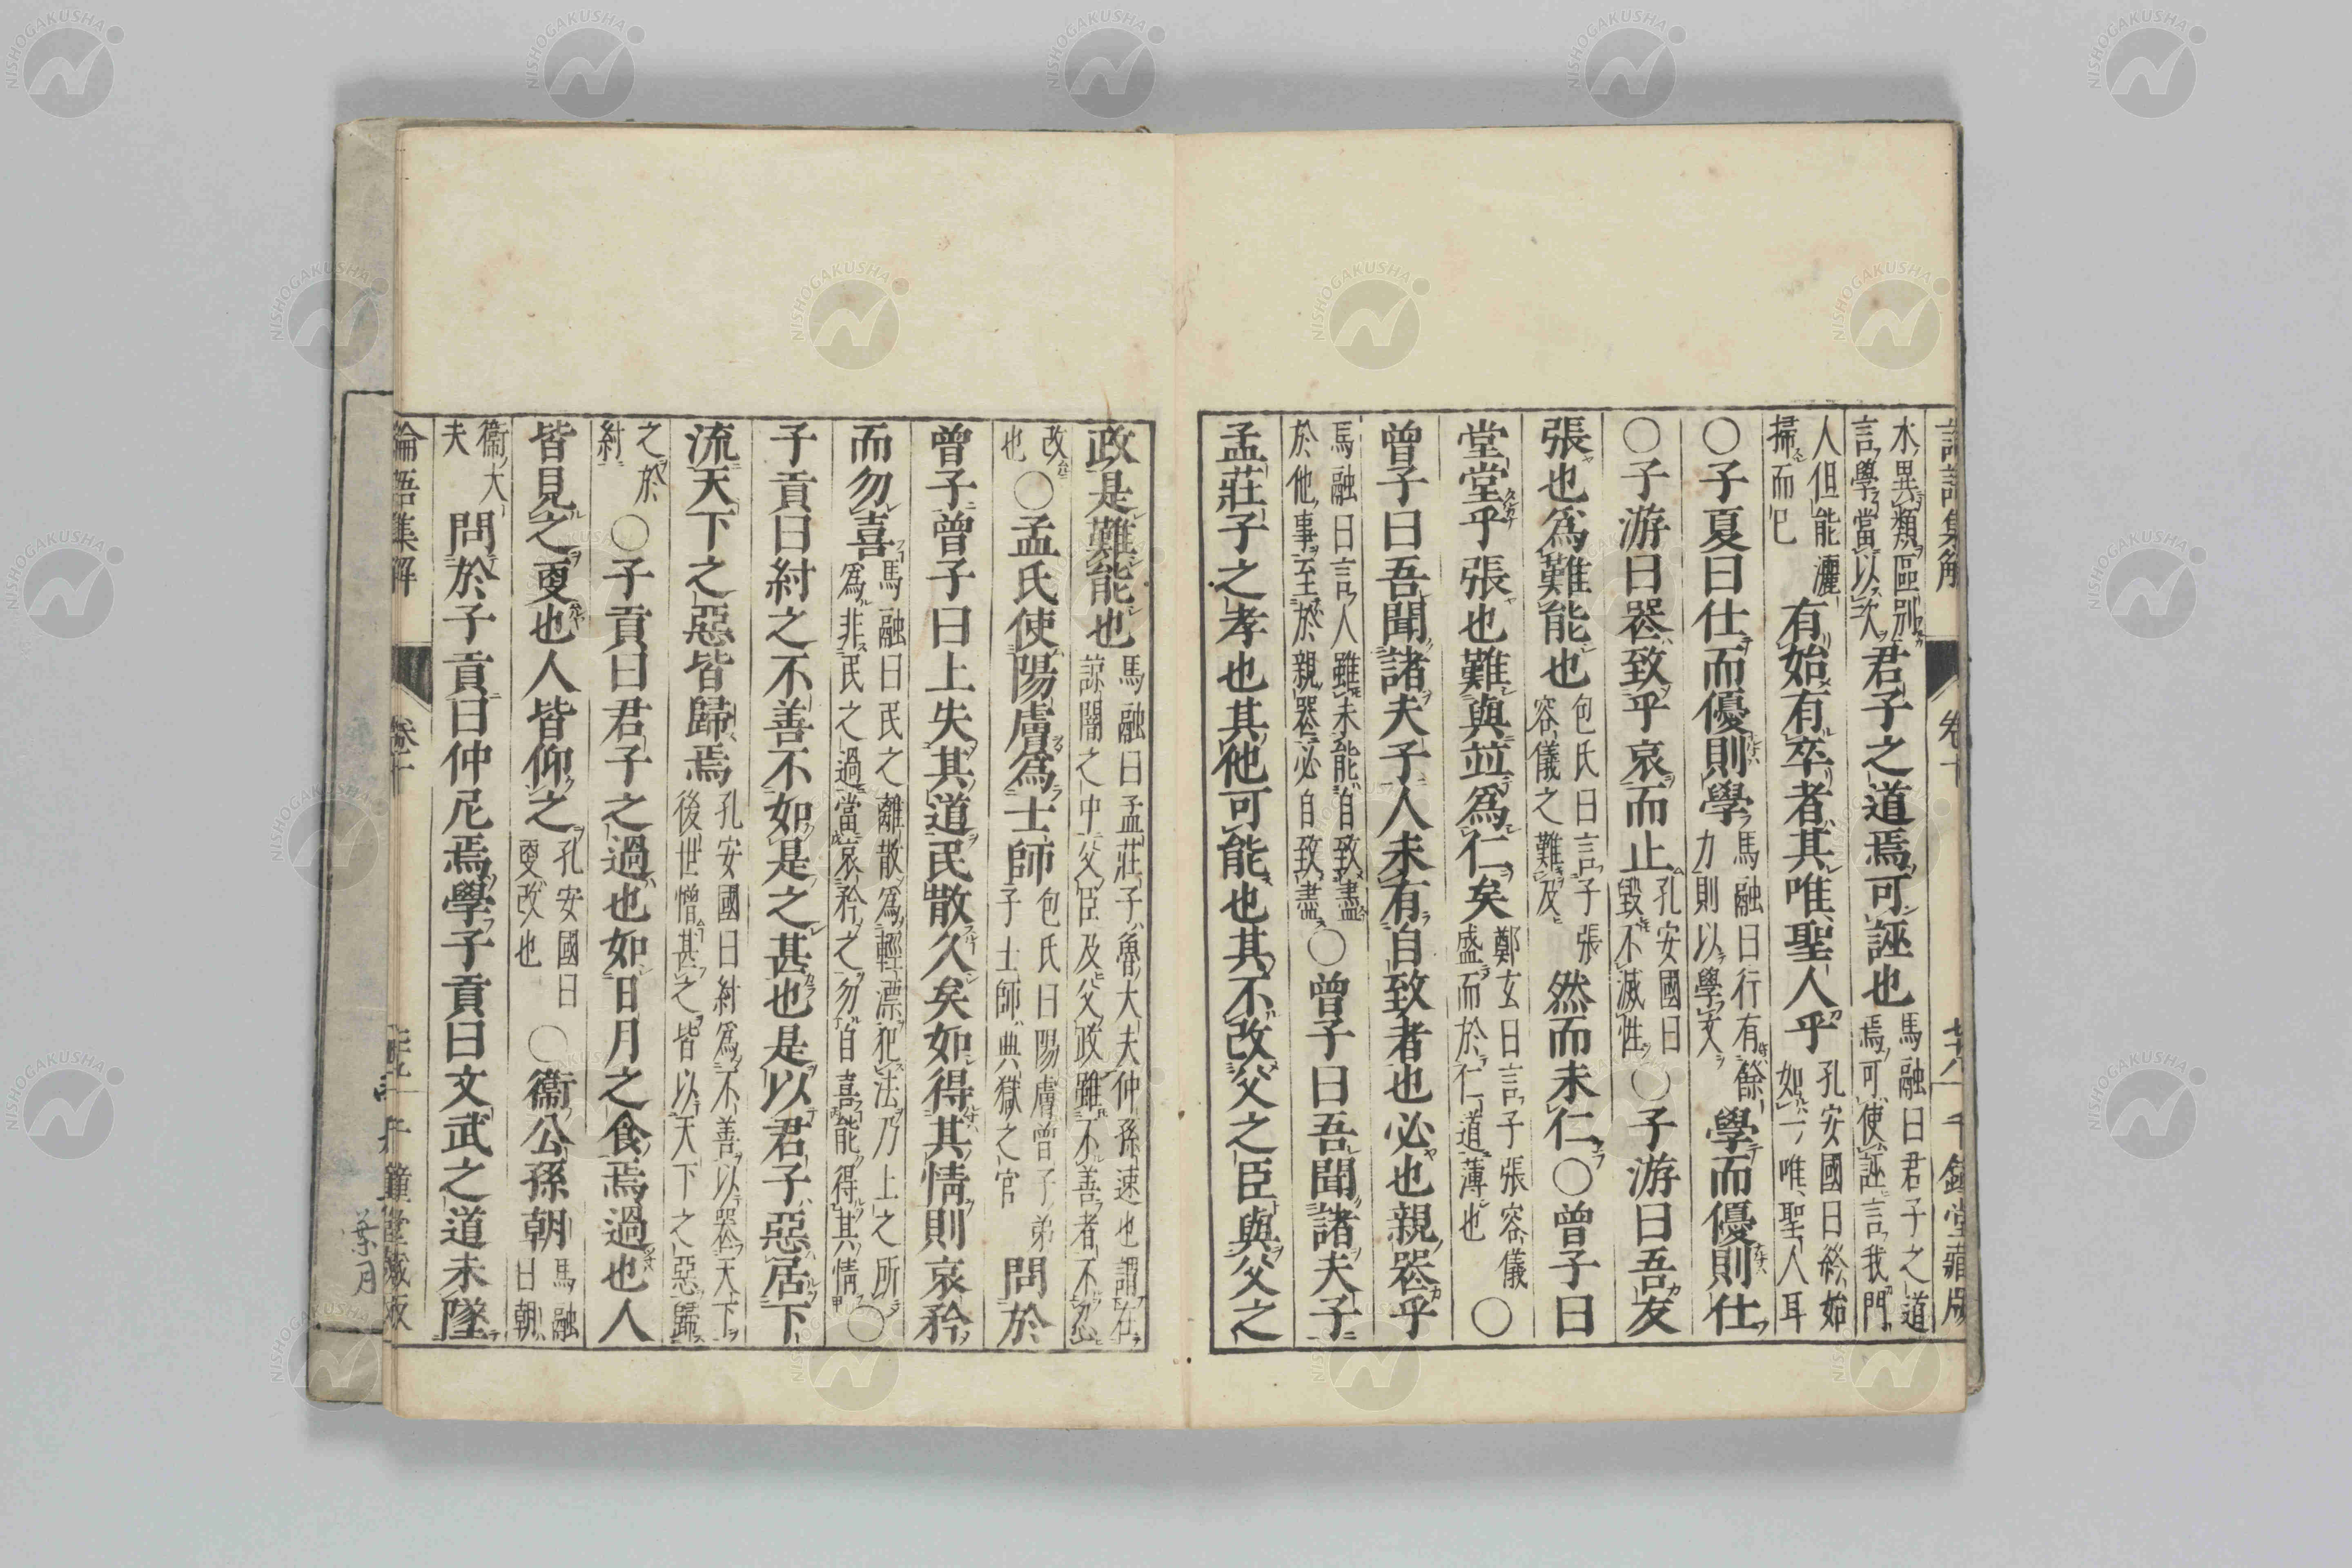 木異類區別言學當以次君子之道焉可誣也馬融曰君子之道焉可使誣言我門
人但能灑掃而已有始有卒者其唯聖人乎孔安國曰終始如一唯聖人耳
〇子夏曰仕而優則學馬融曰行有餘力則以學文學而優則仕
〇子游曰喪致乎哀而止孔安國曰毀不滅性〇子游曰吾友
張也爲難能也包氏曰言子張容儀之難及然而未仁〇曾子曰
堂堂乎張也難與竝爲仁矣鄭玄曰言子張容儀盛而於仁道薄也〇
曾子曰吾聞諸夫子人未有自致者也必也親喪乎
馬融曰言人雖未能自致盡於他事至於親喪必自致盡〇曾子曰吾聞諸夫子
孟莊子之孝也其他可能也其不改父之臣與父之
政是難能也馬融曰孟莊子魯大夫仲孫速也謂在諒闇之中父臣及父政雖不善者不忍
改也〇孟氏使陽膚爲士師包氏曰陽膚曾子弟子士師典獄之官問於
曾子曾子曰上失其道民散久矣如得其情則哀矜
而勿喜馬融曰民之離散爲輕漂犯法乃上之所爲非民之過當哀矜之勿自喜能得其情〇
子貢曰紂之不善不如是之甚也是以君子惡居下
流天下之惡皆歸焉孔安國曰紂爲不善以喪天下後世憎甚之皆以天下之惡歸
之於紂〇子貢曰君子之過也如日月之食焉過也人
皆見之更也人皆仰之孔安國曰更改也〇衞公孫朝馬融曰朝
衞大夫問於子貢曰仲尼焉學子貢曰文武之道未墜
論語集解 卷十